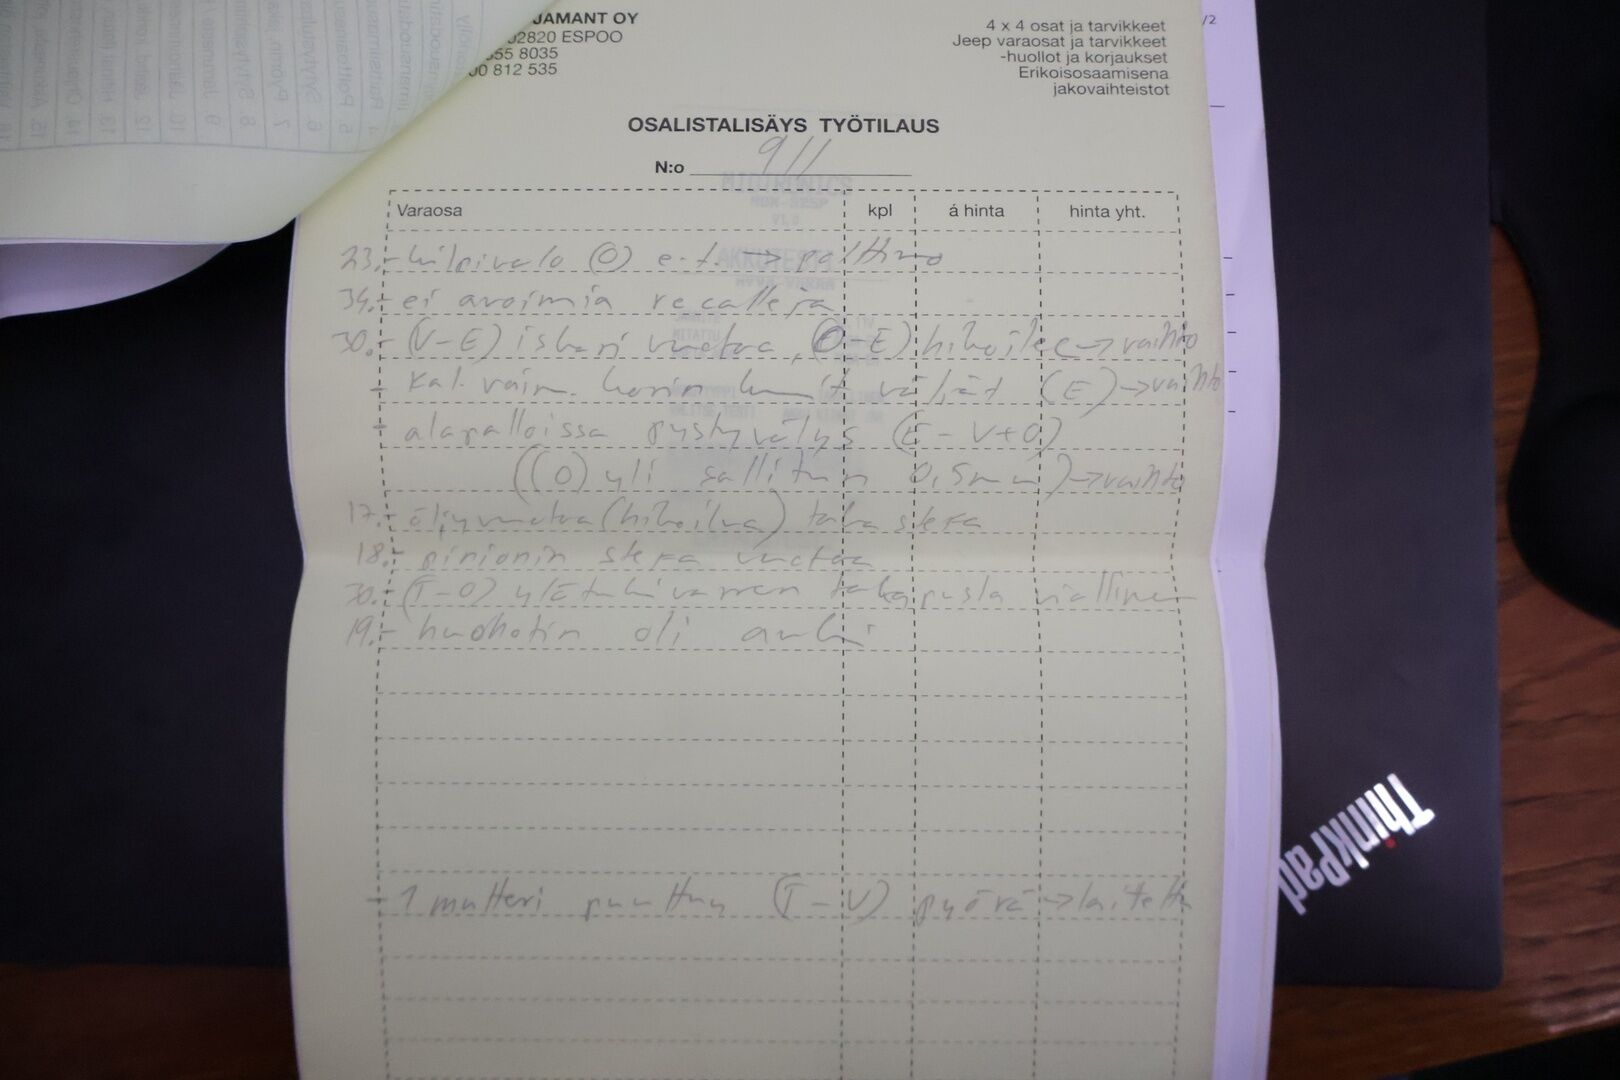 JAMANT OY
02820 ESPOO
555 8035
00 812 535
4 x 4 osat ja tarvikkeet
Jeep varaosat ja tarvikkeet
-huollot ja korjaukset
Erikoisosaamisena
jakovaihteistot
OSALISTALISÄYS TYÖTILAUS
N:o 911
Varaosa kpl á hinta hinta yht.
23.- kilpivalo (O) e.t. → polttimo
34.- ei avoimia recalleja
30.- (V-E) iskari vuotaa, (O-E) hikoilee → vaihto
- kal. vaim. korin kumit väljät (E) → vaihto
- alapalloissa pystyvälys (E - V+O)
((O) yli sallitun 0,5mm) → vaihto
17.- öljyvuotoa (hikoilua) taka stefa
18.- pinionin stefa vuotaa
30.- (T-O) ylätukivarren takapusla viallinen
19.- huohotin oli auki
- 1 mutteri puuttuu (T-V) pyörä → laitettu
ThinkPad